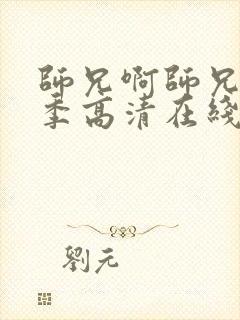 師兄啊師兄
季高清在綫
劉元